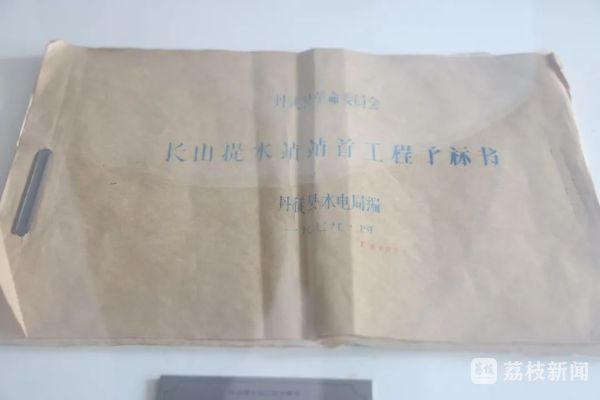 丹徒县革命委员会
长山提水站站首工程予标书
丹徒县水电局编
一九七九·
荔枝新闻